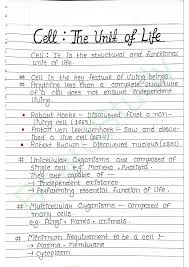 Cell : The Unit of Life
Cell : It is the structural and functional
unit of life.
# Cell is the key feature of living beings
# Anything less than a complete structure
of a cell does not ensure independent
living.
• Robert Hooke - Discovered first a non-
living cell (1665).
• Anton Von Leeuwenhoek - Saw and descri-
bed a live cell (1674)
• Robert Brown - Discovered nucleus (1831)
# Unicellular Organisms are composed of
single cell e.g. Monera, Protista
They are capable of
→ Independent existence
→ Performing essential function of life
# Multicellular Organisms - Composed of
many cells.
e.g. Fungi, Plants, animals
# Minimum Requirement to be a cell :-
→ Plasma - Membrane
→ Cytoplasm